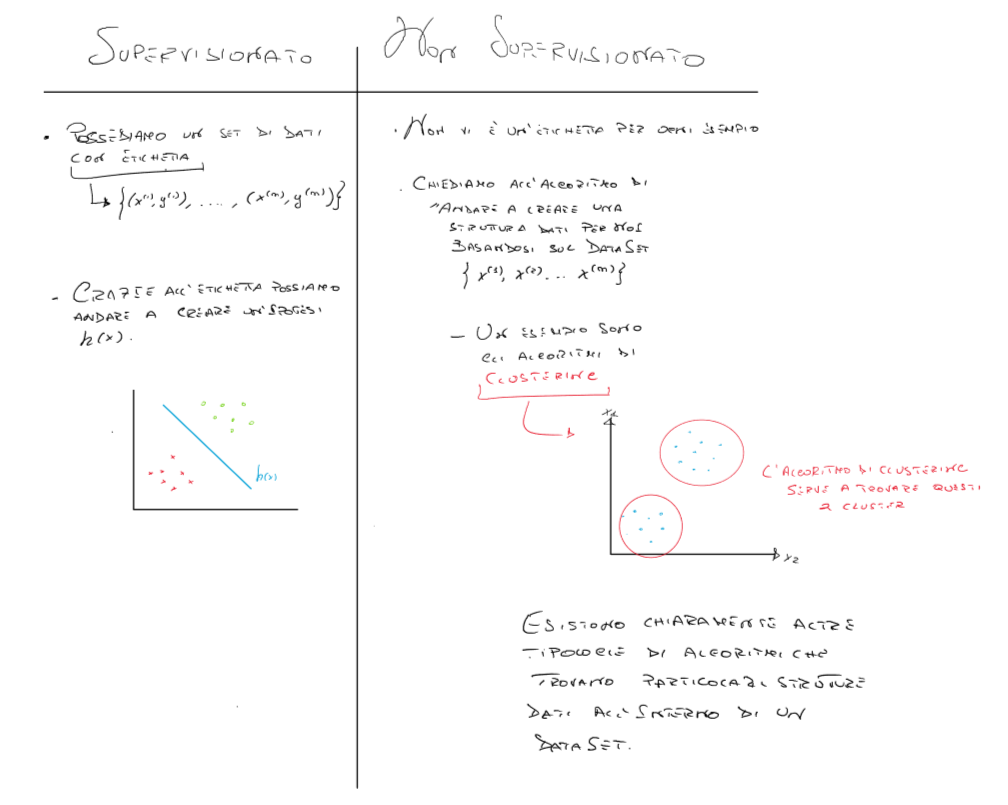 SUPERVISIONATO
NON SUPERVISIONATO
• POSSEDIAMO UN SET DI DATI
CON ETICHETTA
↳ {(x⁽¹⁾, y⁽¹⁾), ...., (x⁽ᵐ⁾, y⁽ᵐ⁾)}
- GRAZIE ALL'ETICHETTA POSSIAMO
ANDARE A CREARE UN'IPOTESI
h(x).
h(x)
• NON VI È UN'ETICHETTA PER OGNI ESEMPIO
• CHIEDIAMO ALL'ALGORITMO DI
"ANDARE A CREARE UNA
STRUTTURA DATI PER NOI
BASANDOSI SUL DATASET
{x⁽¹⁾, x⁽²⁾... x⁽ᵐ⁾}
- UN ESEMPIO SONO
GLI ALGORITMI DI
CLUSTERING
x₂
L'ALGORITMO DI CLUSTERING
SERVE A TROVARE QUESTI
2 CLUSTER
ESISTONO CHIARAMENTE ALTRE
TIPOLOGIE DI ALGORITMI CHE
TROVANO PARTICOLARI STRUTTURE
DATI ALL'INTERNO DI UN
DATASET.